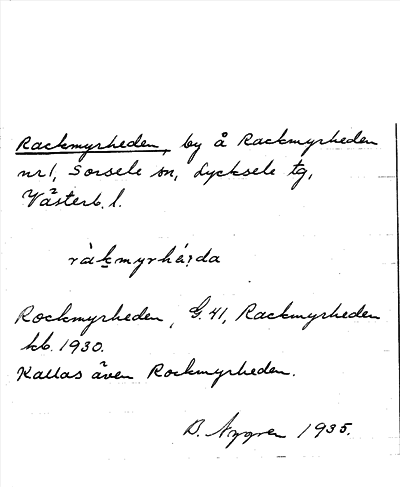 Rackmyrheden, by å Rackmyrheden
nr 1, Sorsele sn, Lycksele tg,
Västerb. l.
ràk̠myrhé₂da
Rockmyrheden, G. 41, Rackmyrheden
kb. 1930.
Kallas även Rockmyrheden.
B. Nygren 1935.